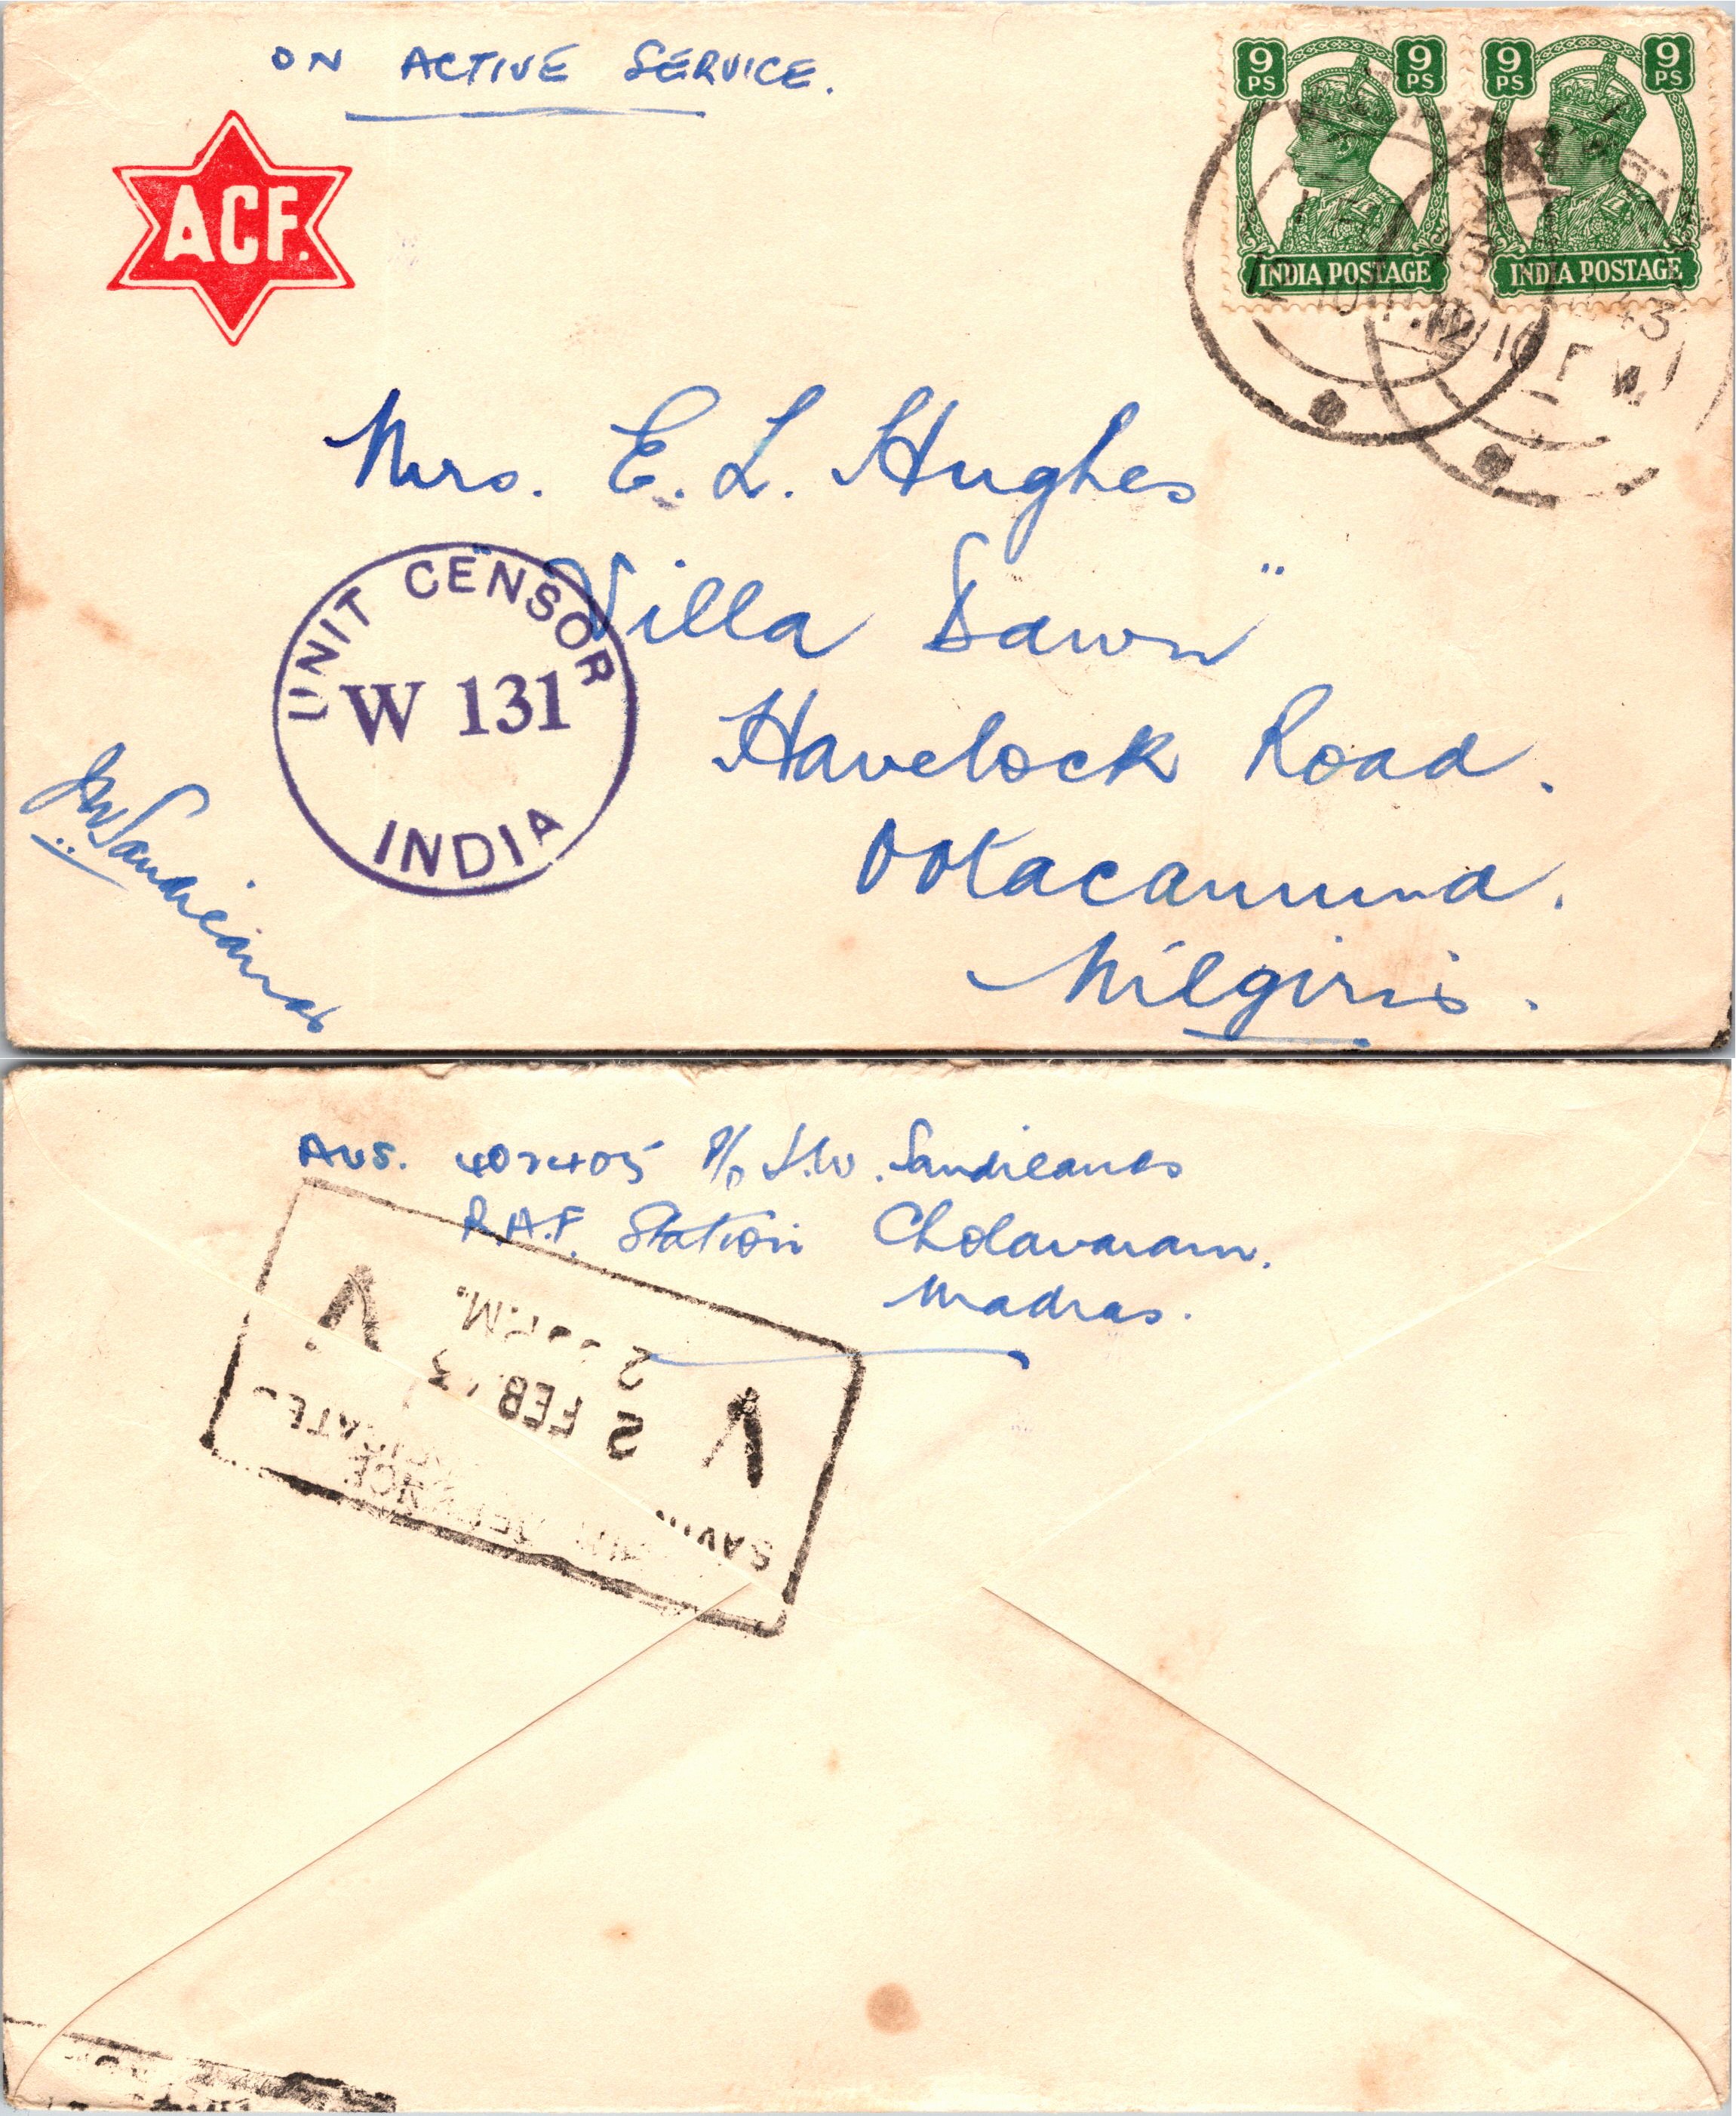 ON ACTIVE SERVICE.
ACF.
9 PS 9 PS
INDIA POSTAGE
9 PS 9 PS
INDIA POSTAGE
Mrs. E. L. Hughes
"Villa Dawn"
Havelock Road.
Ootacamund.
Nilgiris.
UNIT CENSOR
W 131
INDIA
Aus. 402405 P/O J.W.
R.A.F. Station Cholavaram.
Madras.
2 FEB